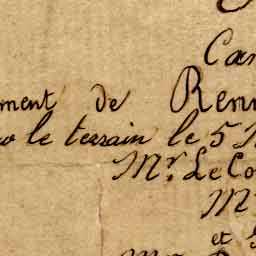 Cam
ment de Renn
le terrain le 5 
Mr. Le Co
M
et